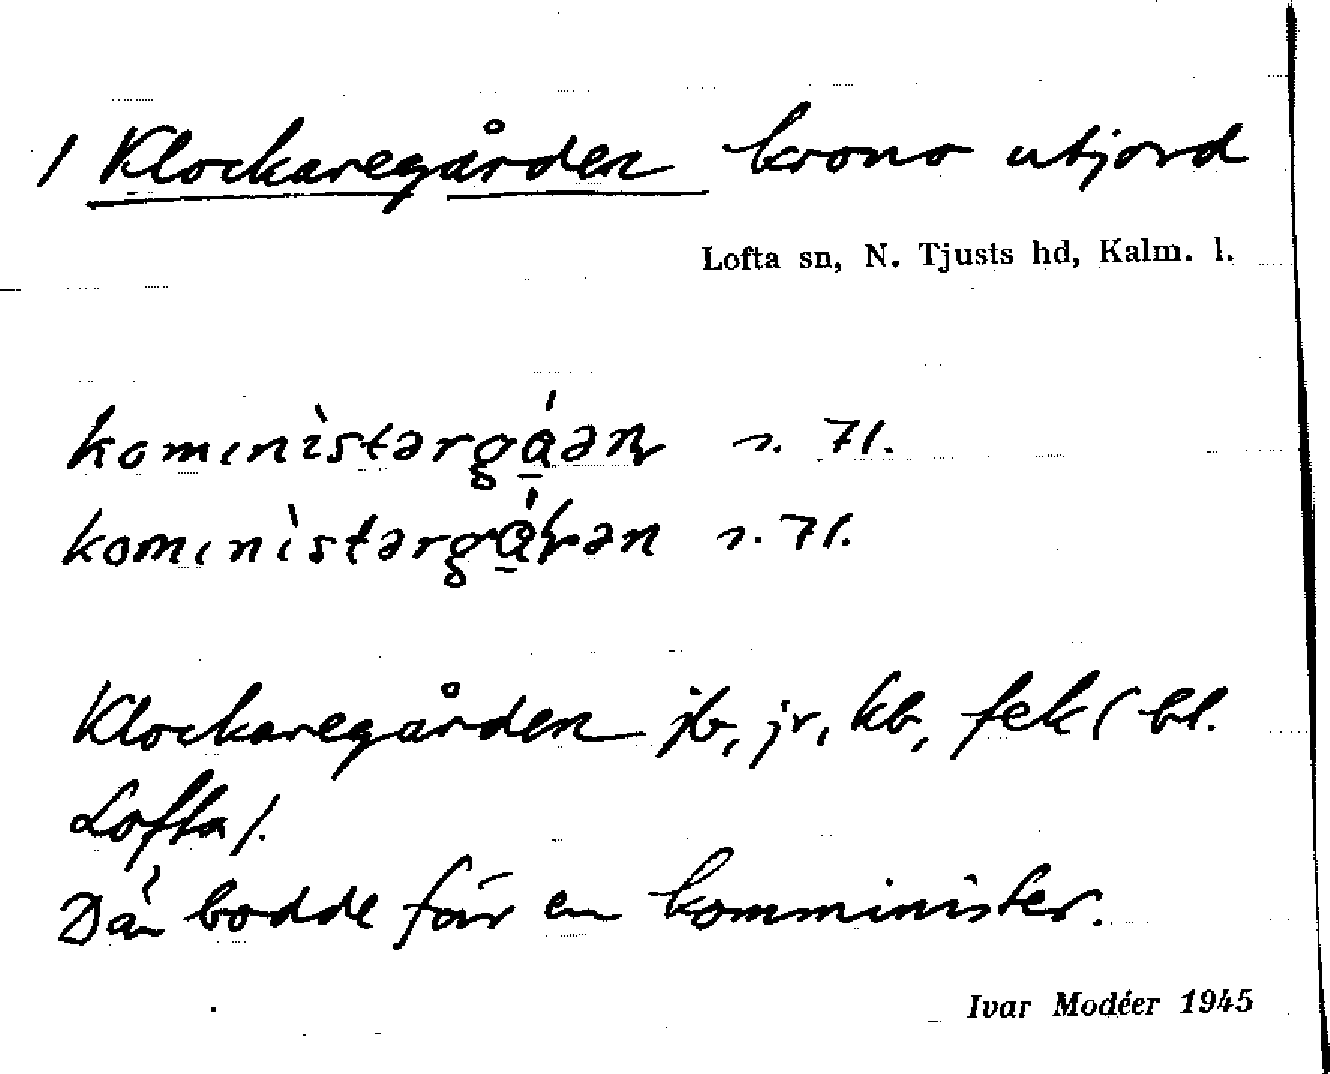 1 Klockaregården krono utjord
Lofta sn, N. Tjusts hd, Kalm. l.
komınìstərgá̱ən s. 71.
komınìstərgá̱rən s. 71.
Klockaregården jb, jr, kb, fek ( bl.
Lofta ).
Där bodde förr en komminister.
Ivar Modéer 1945